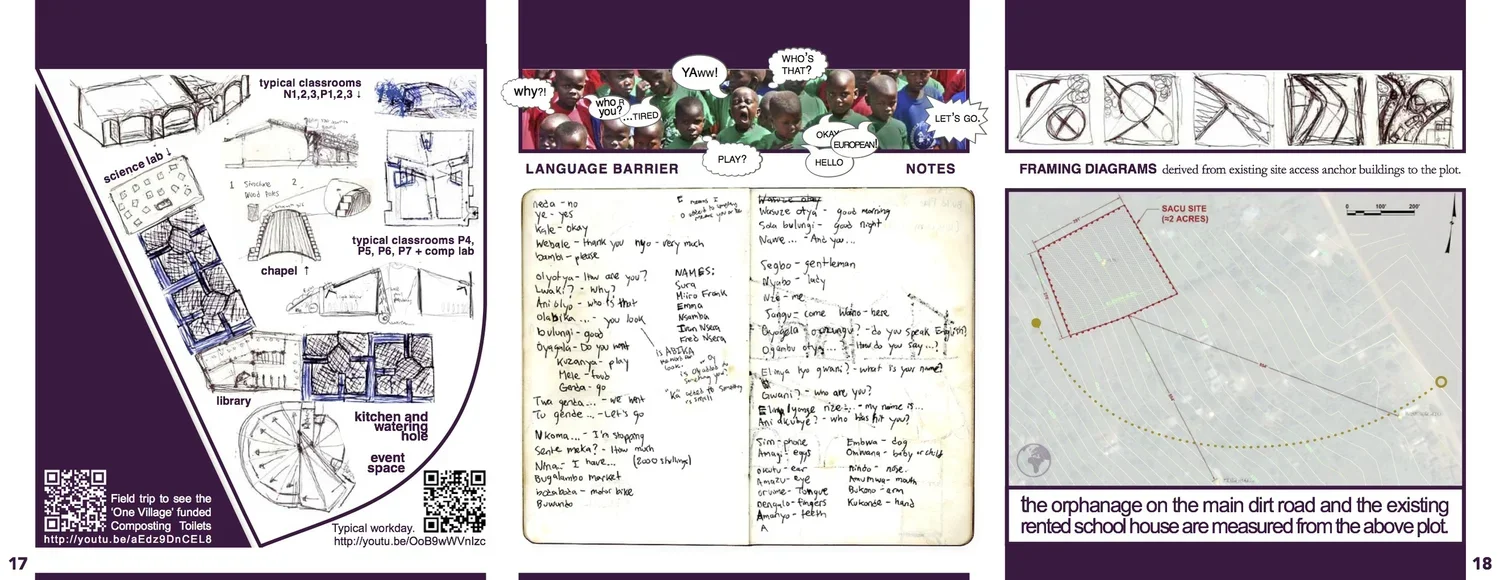 typical classrooms
N1,2,3,P1,2,3 ↓
science lab ↓
1 Structure 2
Wood Poles
chapel ↑
typical classrooms P4,
P5, P6, P7 + comp lab
library
kitchen and
watering
hole
event
space
Field trip to see the
'One Village' funded
Composting Toilets
http://youtu.be/aEdz9DnCEL8
Typical workday.
http://youtu.be/OoB9wWVnIzc
17
why?!
who R
you?
...TIRED
YAww!
WHO'S
THAT?
PLAY?
OKAY
EUROPEAN!
HELLO
LET'S GO.
LANGUAGE BARRIER
NOTES
neda - no
ye - yes
Kale - okay
Webale - thank you nyo - very much
bambi - please
I means I
O added to something
means you or he
olyotya - How are you?
Lwaki? - Why?
Ani oyo - who is that
Olabika ... - you look
bulungi - good
Oyagala - Do you want
Kuzanya - play
Mele - food
Genda - go
Twa genda ... - we went
Tu gende ... - Let's go
NAMES:
Sura
Miiro Frank
Emma
Nsamba
Ivan Nsera
Fred Nsera
is ABIKA
look.
"Ka" added to something
is small
Nkoma ... - I'm stopping
Sente meka? - How much
Nina - I have... (2000 shillings)
Bugalambo market
bodaboda - motor bike
Buwundo
Wasuze otya - good morning
Sula bulungi - good night
Nawe ... - And you ...
Segbo - gentleman
Nyabo - lady
Nze - me
Jangu - come Wano - here
Oyogela oluzungu? - do you speak English?
Oganbu otya ...? How do you say ...?
Elinya lyo gwani? - what is your name?
Gwani? - who are you?
Elinya lyange nze ... - my name is...
Ani akubye? - who has hit you?
Sim - phone
Amagi - eggs
okutu - ear
Amazu - eye
oruime - Tongue
nengalo - fingers
Amanyo - teeth
A
Embwa - dog
Omwana - baby or child
nindo - nose.
Amumwa - mouth
Bukono - arm
Kukonse - hand
FRAMING DIAGRAMS derived from existing site access anchor buildings to the plot.
SACU SITE
(≈2 ACRES)
0 100' 200'
the orphanage on the main dirt road and the existing
rented school house are measured from the above plot.
18